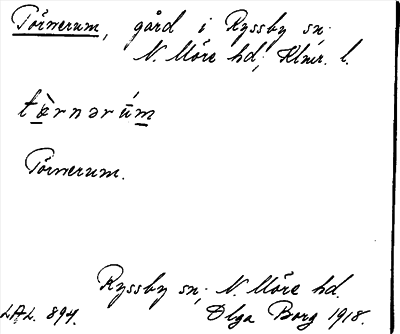 Törnerum, gård i Ryssby sn;
N. Möre hd; Klmr. l.
tœ̀rnərúm
Törnerum.
Ryssby sn; N. Möre hd.
LAL. 894. Olga Borg 1918.